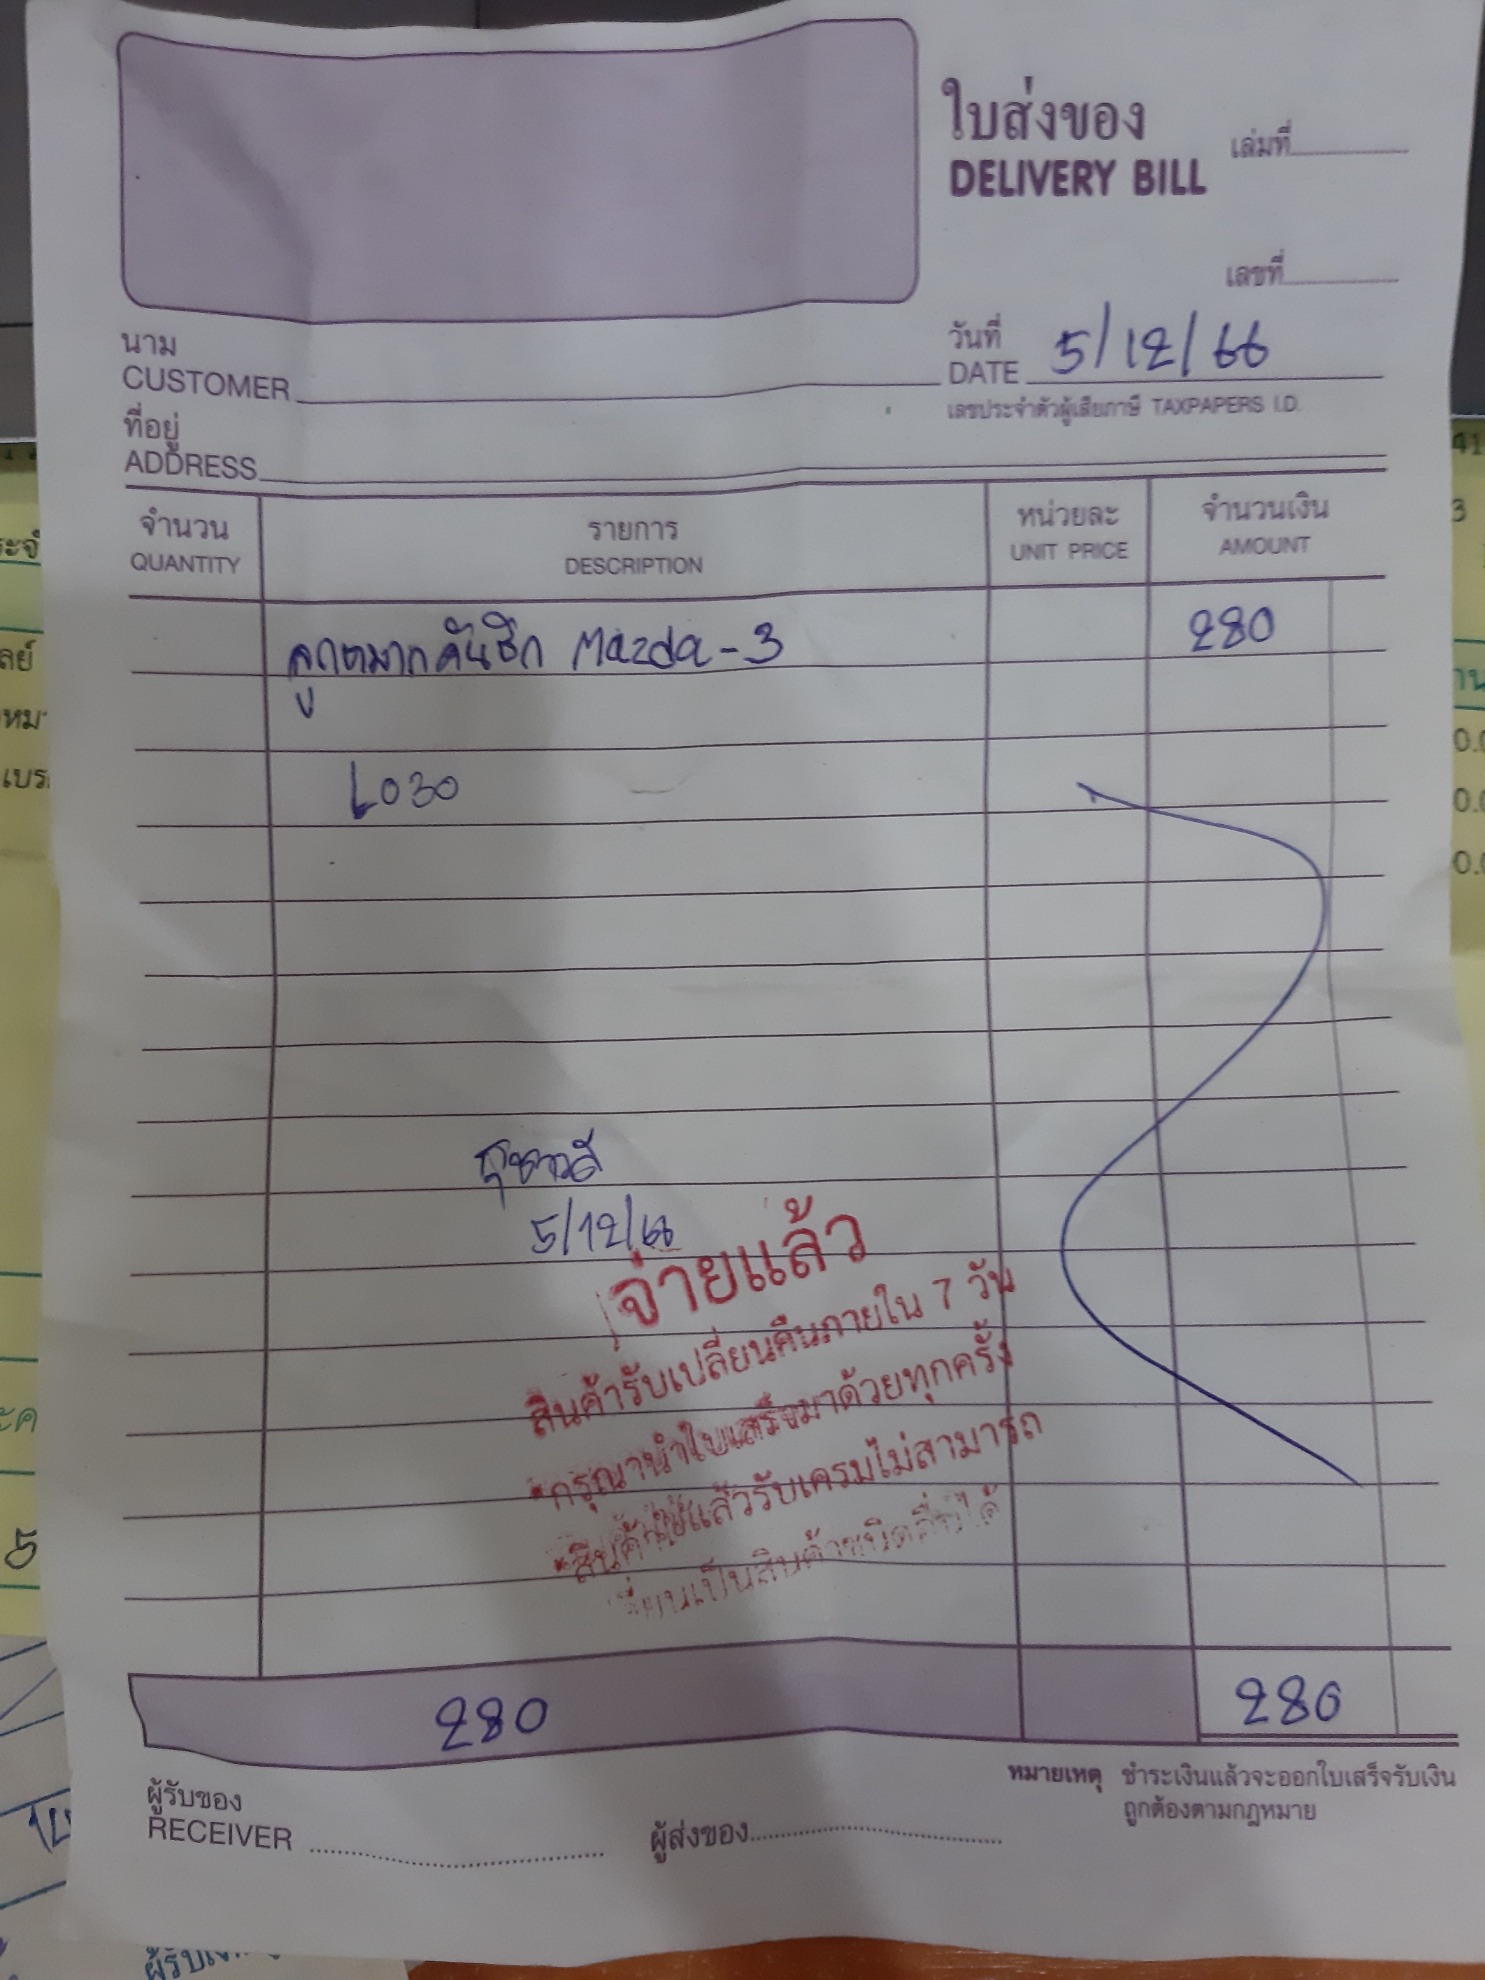 ใบส่งของ
DELIVERY BILL
เล่มที่
เลขที่
นาม
CUSTOMER
วันที่
DATE 5/12/66
เลขประจำตัวผู้เสียภาษี TAXPAPERS I.D.
ที่อยู่
ADDRESS
จำนวน
QUANTITY
รายการ
DESCRIPTION
หน่วยละ
UNIT PRICE
จำนวนเงิน
AMOUNT
ลูกหมากคันชัก Mazda-3 280
L030
5/12/66
จ่ายแล้ว
สินค้ารับเปลี่ยนคืนภายใน 7 วัน
*กรุณานำใบเสร็จมาด้วยทุกครั้ง
*สินค้าใช้แล้วรับเครมไม่สามารถ
เป็นสินค้าชนิดอื่นได้
280 280
ผู้รับของ
RECEIVER
ผู้ส่งของ
หมายเหตุ ชำระเงินแล้วจะออกใบเสร็จรับเงิน
ถูกต้องตามกฎหมาย